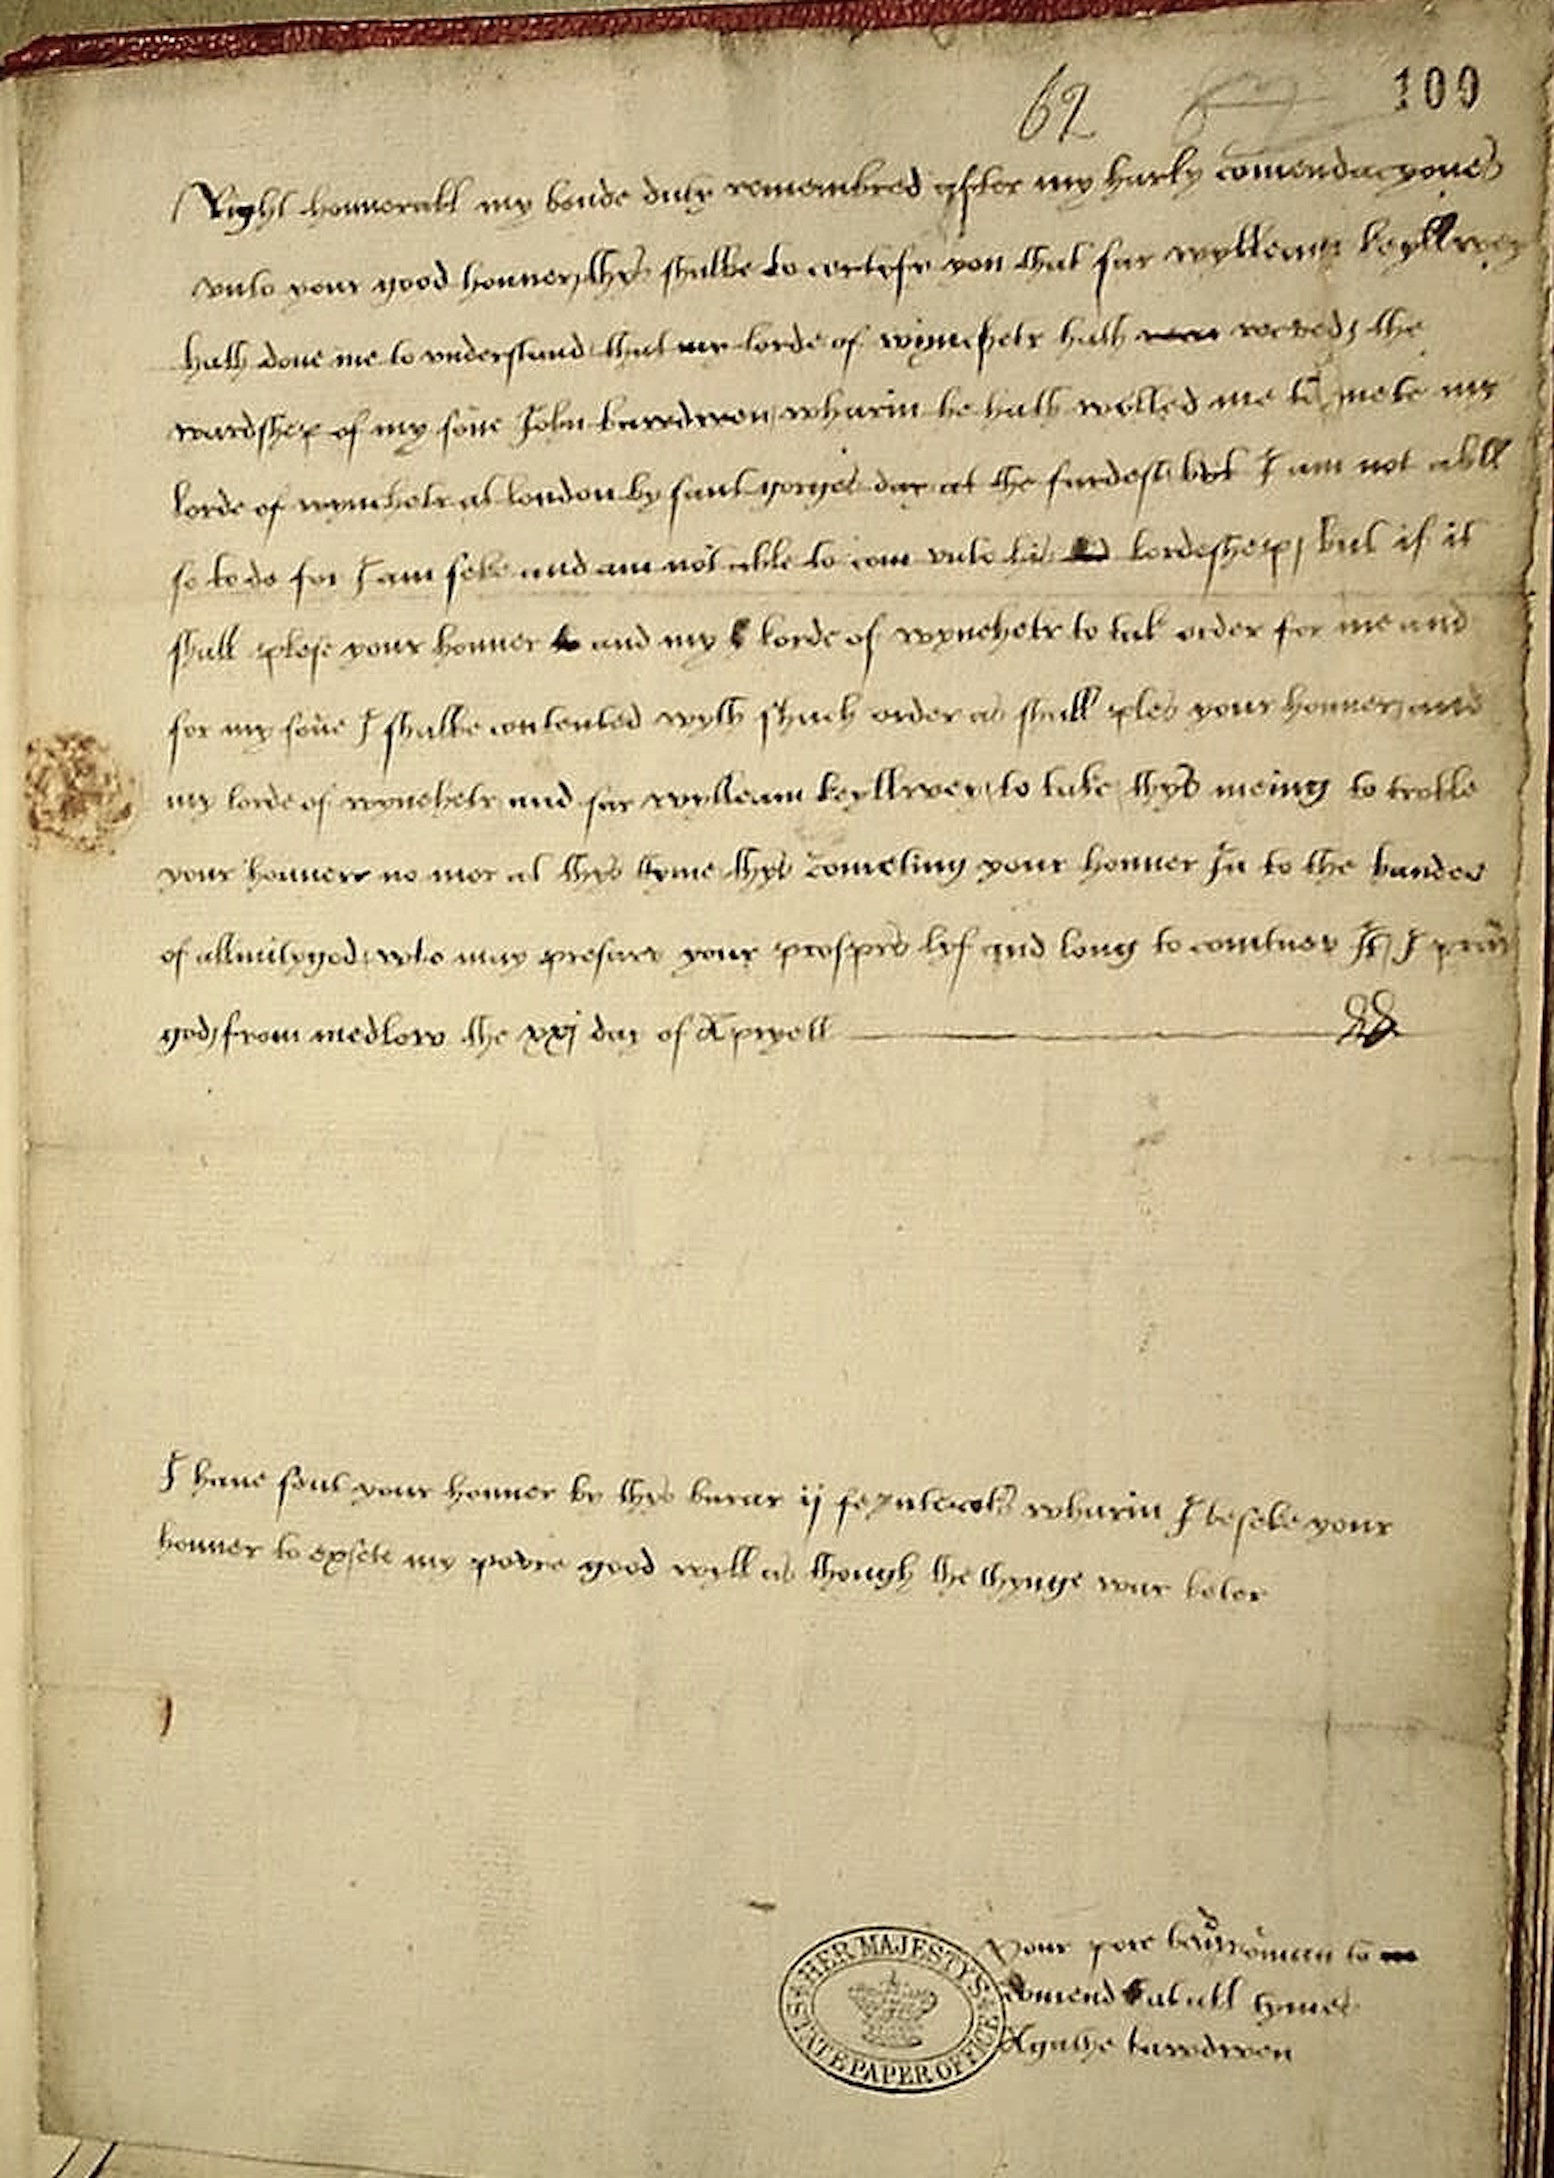 69 100
Right honnerabll my bonde duty remembred after my harty comendacyones
vnto your good honner, thys shalbe to certefy you that sur wylleam keyllwey
hath done me to vnderstand that my lorde of wynchestr hath the
wardshep of my sone John bawdwen, wharin he hath wylled me to mete my
lorde of wynchestr at london by sant gorges day at the furdest but I am not abll
so to do for I am seke and am not able to com vnto his lordeshep, but if it
shall plese your honner and my lorde of wynchestr to tak order for me and
for my sone I shalbe contented wyth shuch order as shall ples your honner, and
my lorde of wynchestr and sur wylleam keyllwey, to take, thys meing to troble
your honner no mor at thys tyme thys cometing your honner In to the handes
of allmity god, who may presarve your prosprs lyf and long to contenew It, I pray
god, from medlow the xxj day of Apryell
I have sent your honner by thys barar ij wharin I beseke your
honner to exsete my powre good wyll as though the thynge war beter
your pore bedwoman to
comend at all tymes
Agathe bawdwen
HER MAJESTY'S
STATE PAPER OFFICE